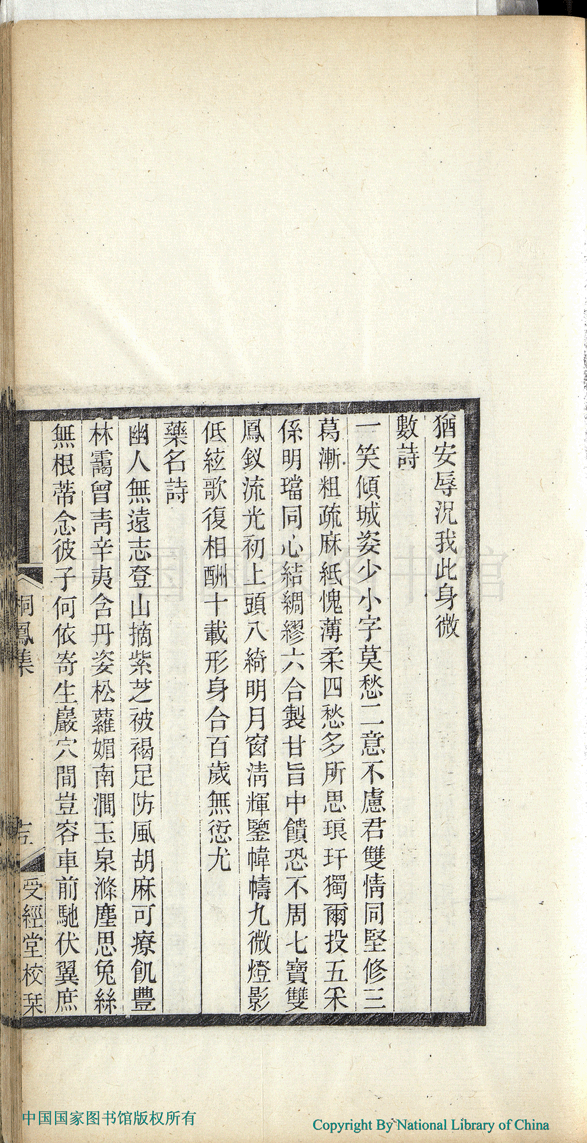 猶安辱況我此身微
數詩
一笑傾城姿少小字莫愁二意不慮君雙情同堅修三
葛漸粗疏麻紙愧薄柔四愁多所思琅玕獨爾投五采
係明璫同心結綢繆六合製甘旨中饋恐不周七寶雙
鳳釵流光初上頭八綺明月窗淸輝鑒幃幬九微燈影
低絃歌復相酬十載形身合百歲無愆尤
藥名詩
幽人無遠志登山摘紫芝被褐足防風胡麻可療飢豐
林靄曾靑辛夷含丹姿松蘿媚南澗玉泉滌塵思兔絲
無根蒂念彼子何依寄生巖穴間豈容車前馳伏翼庶
桐鳳集
受經堂校栞
中国国家图书馆
中国国家图书馆版权所有
Copyright By National Library of China